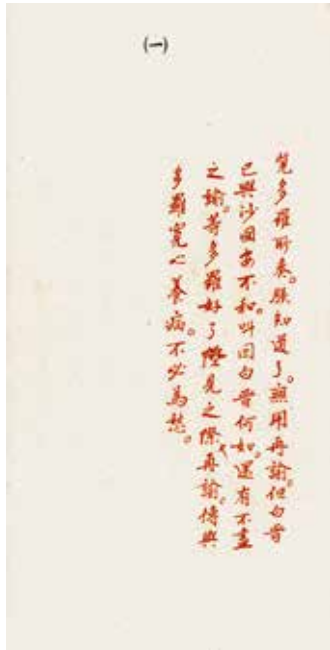 (一)
覽多羅所奏。朕知道了。無用再諭。但白晉
已與沙國安不和。叫回白晉何如。還有不盡
之諭。等多羅好了陛見之際、再諭。傳與
多羅寬心養病。不必為愁。